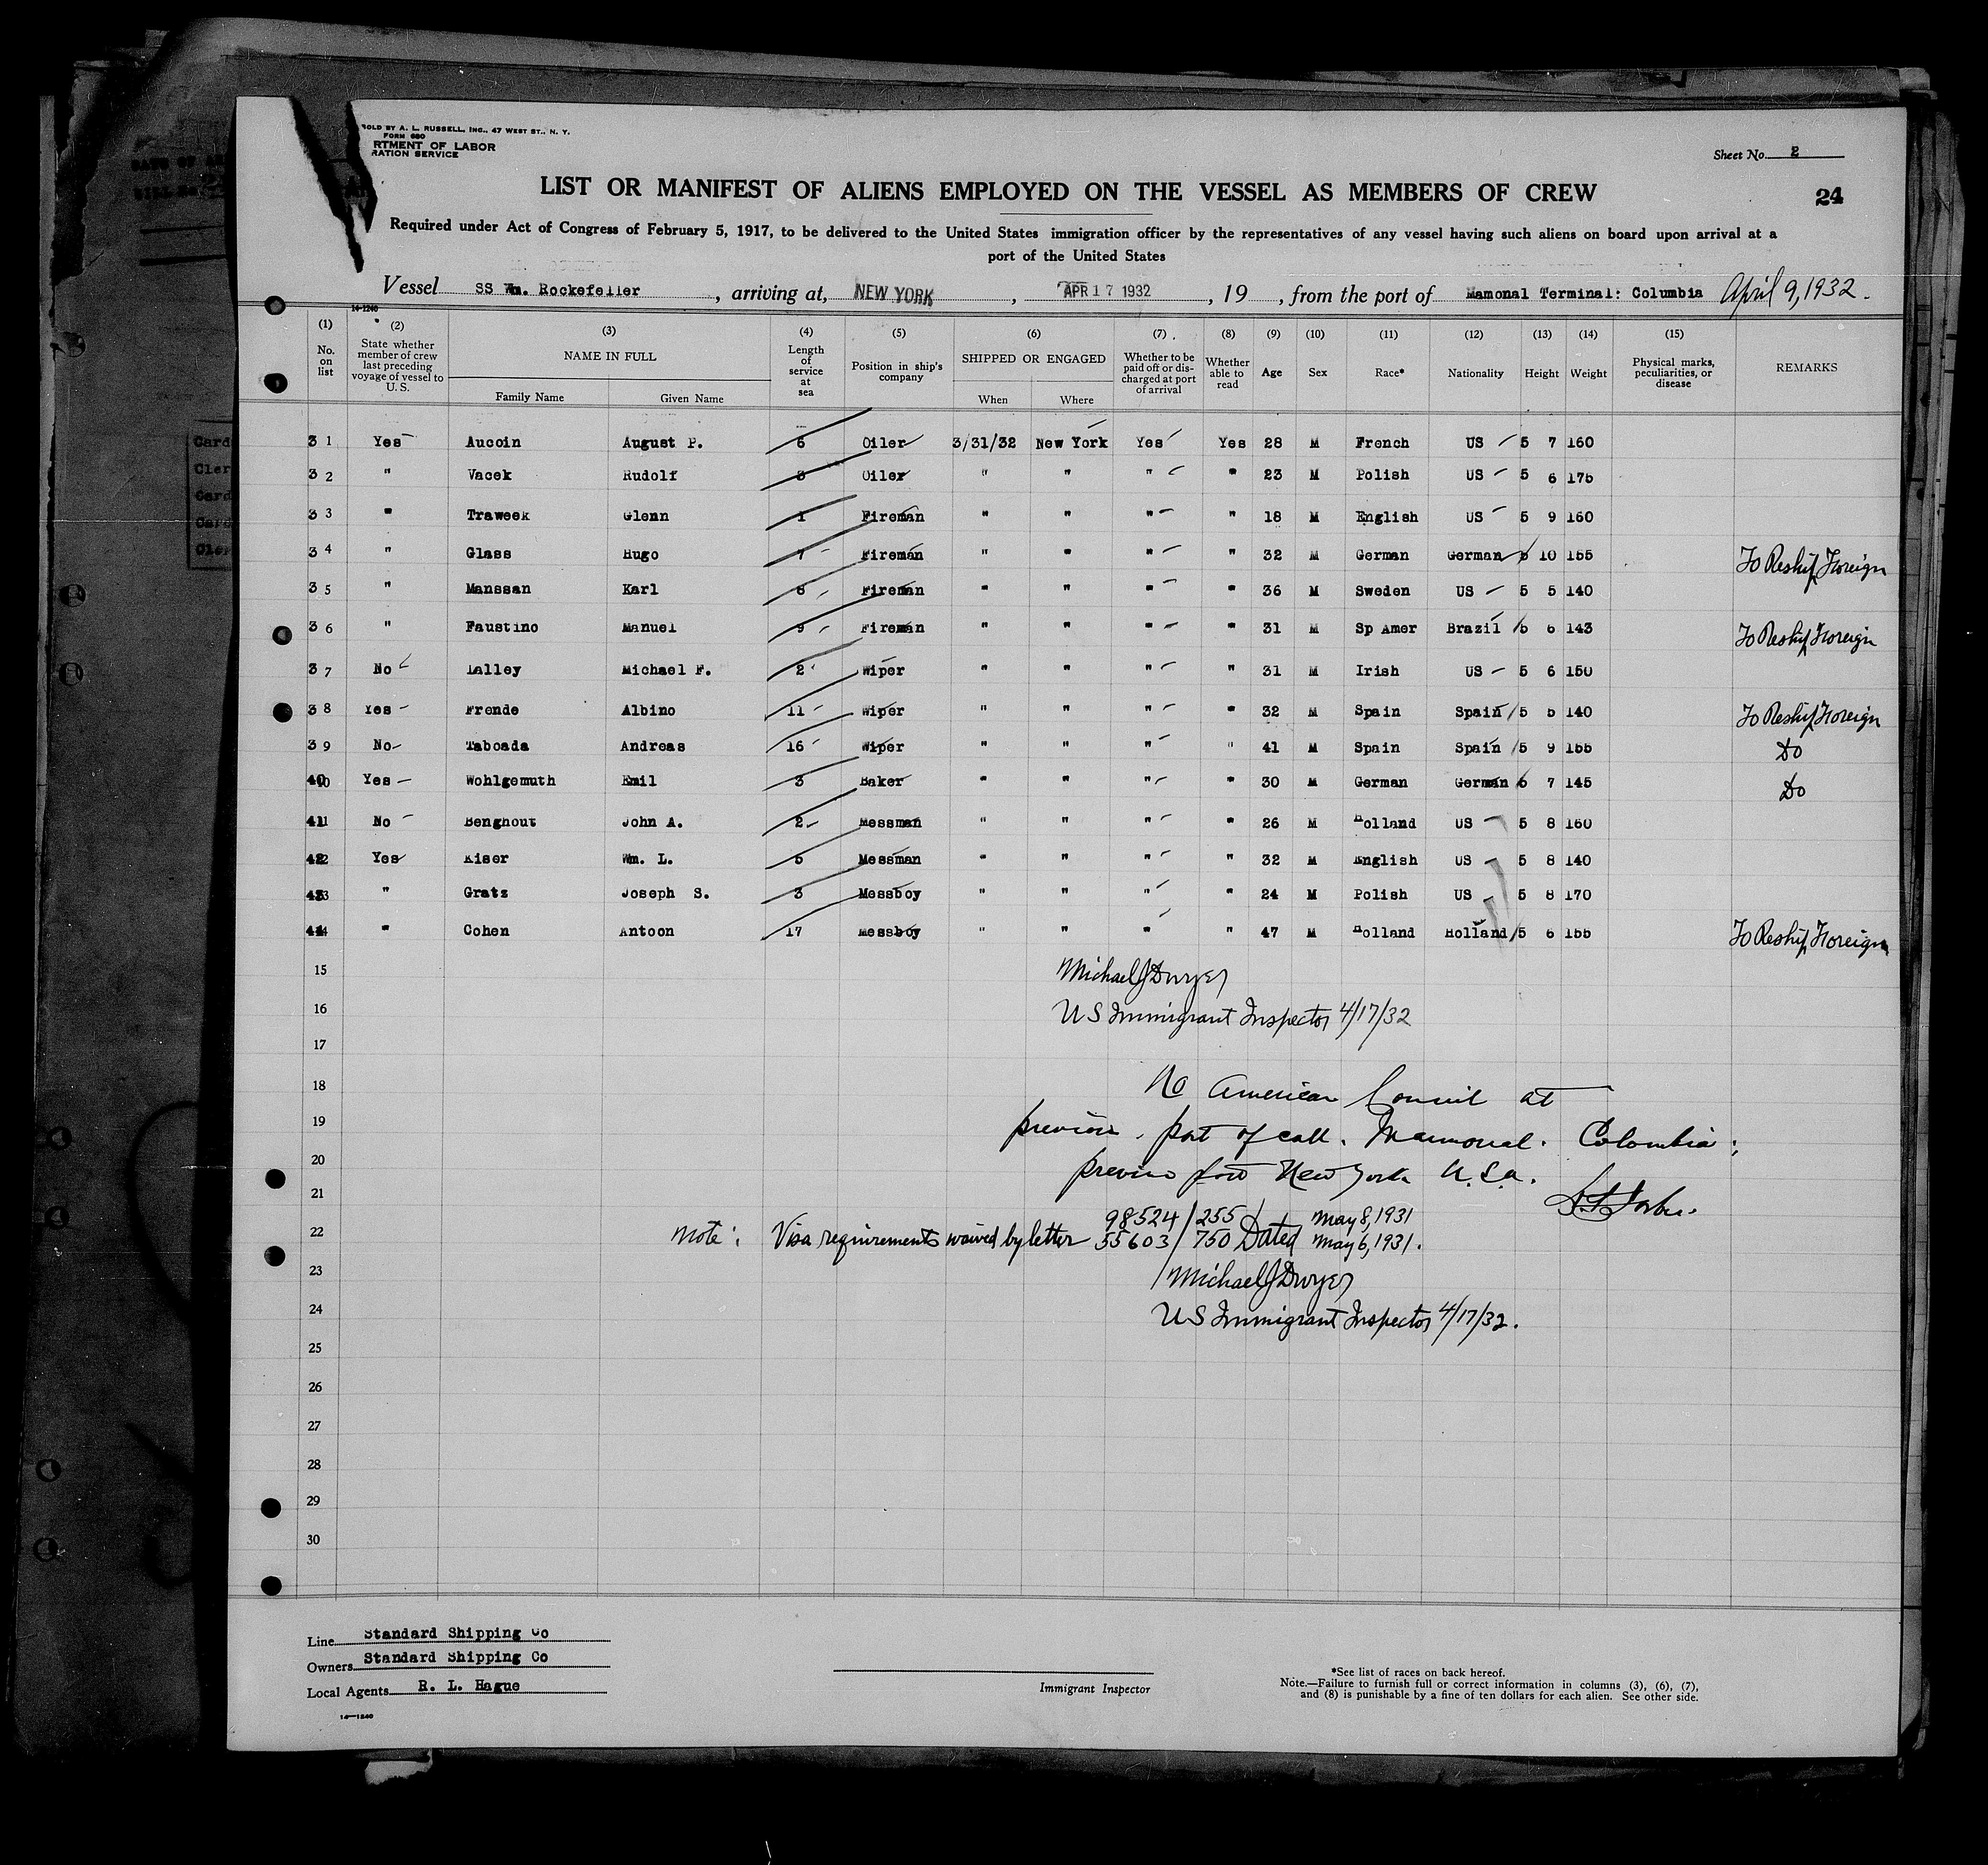 SOLD BY A. L. RUSSELL, INC., 47 WEST ST., N. Y.
FORM 680
RTMENT OF LABOR
RATION SERVICE
Sheet No. 2
LIST OR MANIFEST OF ALIENS EMPLOYED ON THE VESSEL AS MEMBERS OF CREW
24
Required under Act of Congress of February 5, 1917, to be delivered to the United States immigration officer by the representatives of any vessel having such aliens on board upon arrival at a
port of the United States
Vessel SS Wm. Rockefeller, arriving at, NEW YORK, APR 17 1932, 19 , from the port of Mamonal Terminal: Columbia April 9, 1932.
14-1240
(1) No. on list (2) State whether member of crew last preceding voyage of vessel to U. S. (3) NAME IN FULL Family Name Given Name (4) Length of service at sea (5) Position in ship's company (6) SHIPPED OR ENGAGED When Where (7) Whether to be paid off or discharged at port of arrival (8) Whether able to read (9) Age (10) Sex (11) Race* (12) Nationality (13) Height (14) Weight (15) Physical marks, peculiarities, or disease REMARKS
3 1 Yes Aucoin August P. 6 Oiler 3/31/32 New York Yes Yes 28 M French US 5 7 160
3 2 " Vacek Rudolf Oiler " " " " 23 M Polish US 5 6 175
3 3 " Traweek Glenn 1 Fireman " " " " 18 M English US 5 9 160
3 4 " Glass Hugo 7 Fireman " " " " 32 M German German 5 10 155 To Reship Foreign
3 5 " Manssan Karl 6 Fireman " " " " 36 M Sweden US 5 5 140
3 6 " Faustino Manuel 9 Fireman " " " " 31 M Sp Amer Brazil 5 6 143 To Reship Foreign
3 7 No Lalley Michael F. 2 Wiper " " " " 31 M Irish US 5 6 150
3 8 Yes Frende Albino 11 Wiper " " " " 32 M Spain Spain 5 5 140 To Reship Foreign
3 9 No Taboada Andreas 16 Wiper " " " " 41 M Spain Spain 5 9 155 Do
40 10 Yes Wohlgemuth Emil 3 Baker " " " " 30 M German German 5 7 145 Do
41 No Benghout John A. 2 Messman " " " " 26 M Holland US 5 8 160
42 Yes Kiser Wm. L. 5 Messman " " " " 32 M English US 5 8 140
43 " Gratz Joseph S. 3 Messboy " " " " 24 M Polish US 5 8 170
44 " Cohen Antoon 17 Messboy " " " " 47 M Holland Holland 5 6 155 To Reship Foreign
15
Michael J Dwyer
16
US Immigrant Inspector 4/17/32
17
18
No American Council at
19
previous port of call. Mamonal. Colombia;
20
previous port New York U.S.A.
21
98524/255 May 8, 1931
22
Note: Visa requirements waived by letter 55603/750 Dated May 6, 1931.
23
Michael J Dwyer
24
US Immigrant Inspector 4/17/32.
25
26
27
28
29
30
Line Standard Shipping Co
Owners Standard Shipping Co
Local Agents R. L. Hague
14—1240
Immigrant Inspector
*See list of races on back hereof.
Note.—Failure to furnish full or correct information in columns (3), (6), (7),
and (8) is punishable by a fine of ten dollars for each alien. See other side.